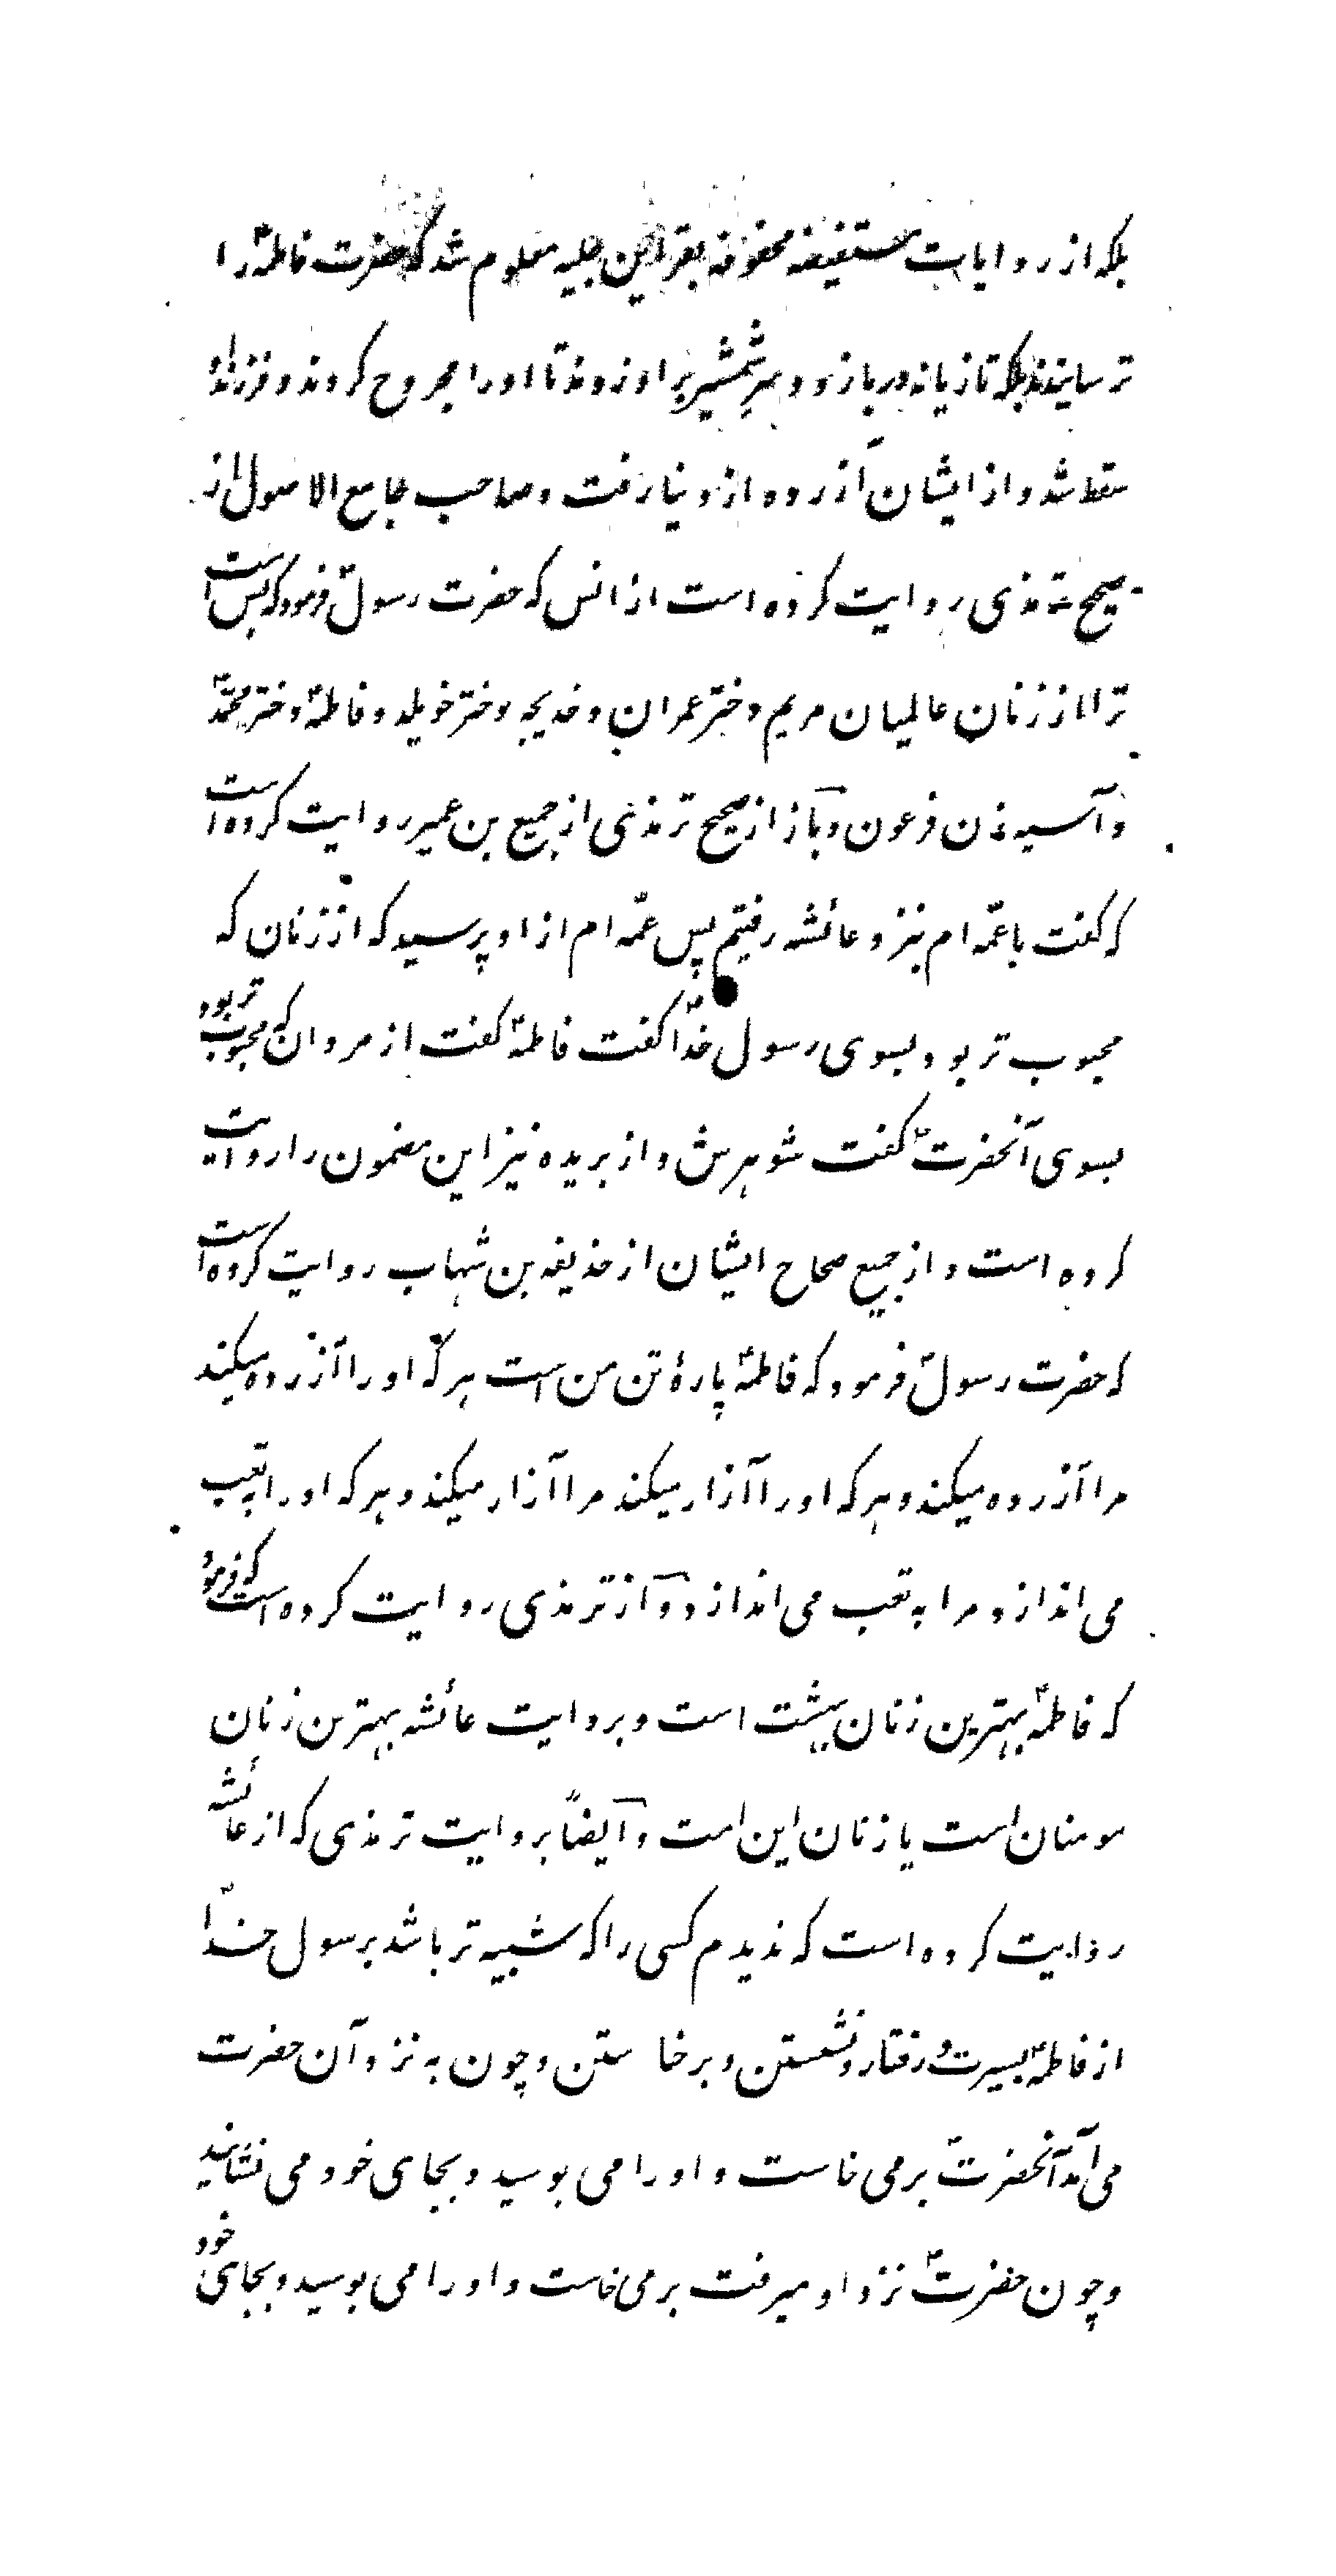 بلکه از روایات مستفیضه محفوفه بقراین جلیه معلوم شد که حضرت فاطمهؑ را
ترسانیدند بلکه تازیانه بر بازو و سر شمشیر بر او زدند تا او را مجروح کردند و فرزندش
سقط شد و از ایشان آزرده از دنیا رفت و صاحب جامع الاصول از
صحیح ترمذی روایت کرده است از انس که حضرت رسولؐ فرمود که بس است
ترا از زنان عالمیان مریم دختر عمران و خدیجه دختر خویلد و فاطمهؑ دختر محمدؐ
و آسیه زن فرعون و باز از صحیح ترمذی از جمیع بن عمیر روایت کرده است
که گفت با عمّه ام بنزد عائشه رفتیم پس عمّه ام از او پرسید که از زنان که
محبوب تر بود بسوی رسول خداؐ گفت فاطمهؑ گفت از مردان که محبوب تر بود
بسوی آنحضرتؐ گفت شوهرش و از بریده نیز این مضمون را روایت
کرده است و از جمیع صحاح ایشان از حذیفه بن شهاب روایت کرده است
که حضرت رسولؐ فرمود که فاطمهؑ پارهٔ تن من است هر که او را آزرده میکند
مرا آزرده میکند و هر که او را آزار میکند مرا آزار میکند و هر که او را به تعب
می اندازد مرا به تعب می اندازد و از ترمذی روایت کرده است که فرمود
که فاطمهؑ بهترین زنان بهشت است و بروایت عائشه بهترین زنان
مومنان است یا زنان این امت و ایضاً بروایت ترمذی که از عائشه
روایت کرده است که ندیدم کسی را که شبیه تر باشد برسول خداؐ
از فاطمهؑ بسیرت و رفتار و نشستن و برخاستن و چون به نزد آن حضرت
می آمد آنحضرتؐ برمی خاست و او را می بوسید و بجای خود می نشانید
و چون حضرتؐ نزد او میرفت برمی خاست و او را می بوسید و بجای خود